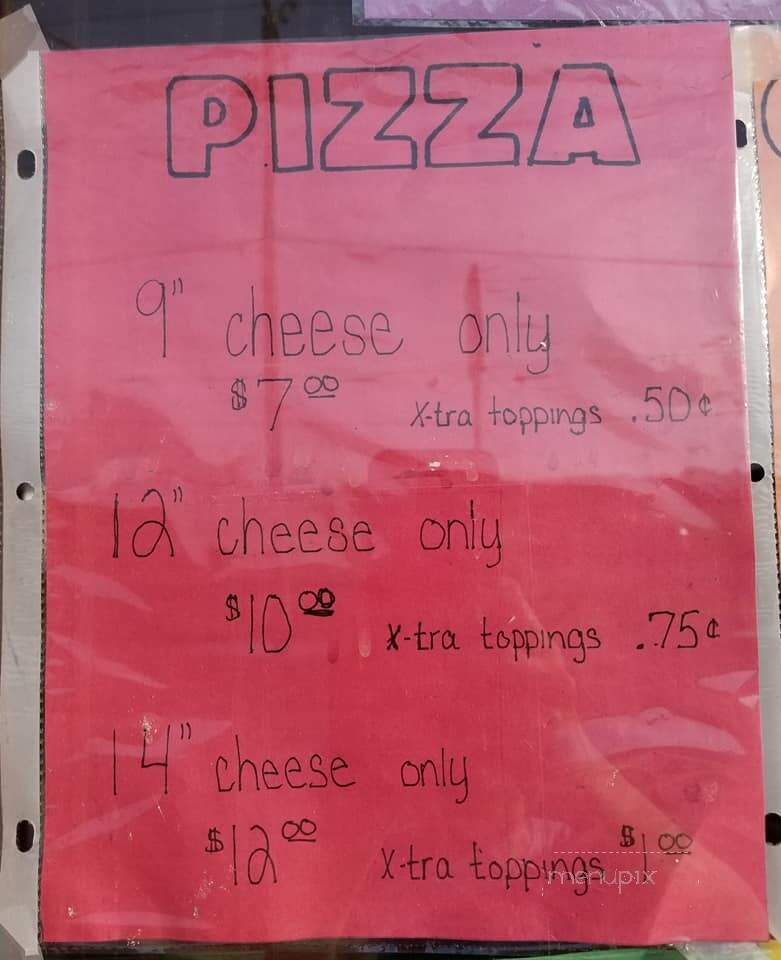 PIZZA
9" cheese only
$7.00 X-tra toppings .50¢
12" cheese only
$10.00 X-tra toppings .75¢
14" cheese only
$12.00 X-tra toppings $1.00
menupix